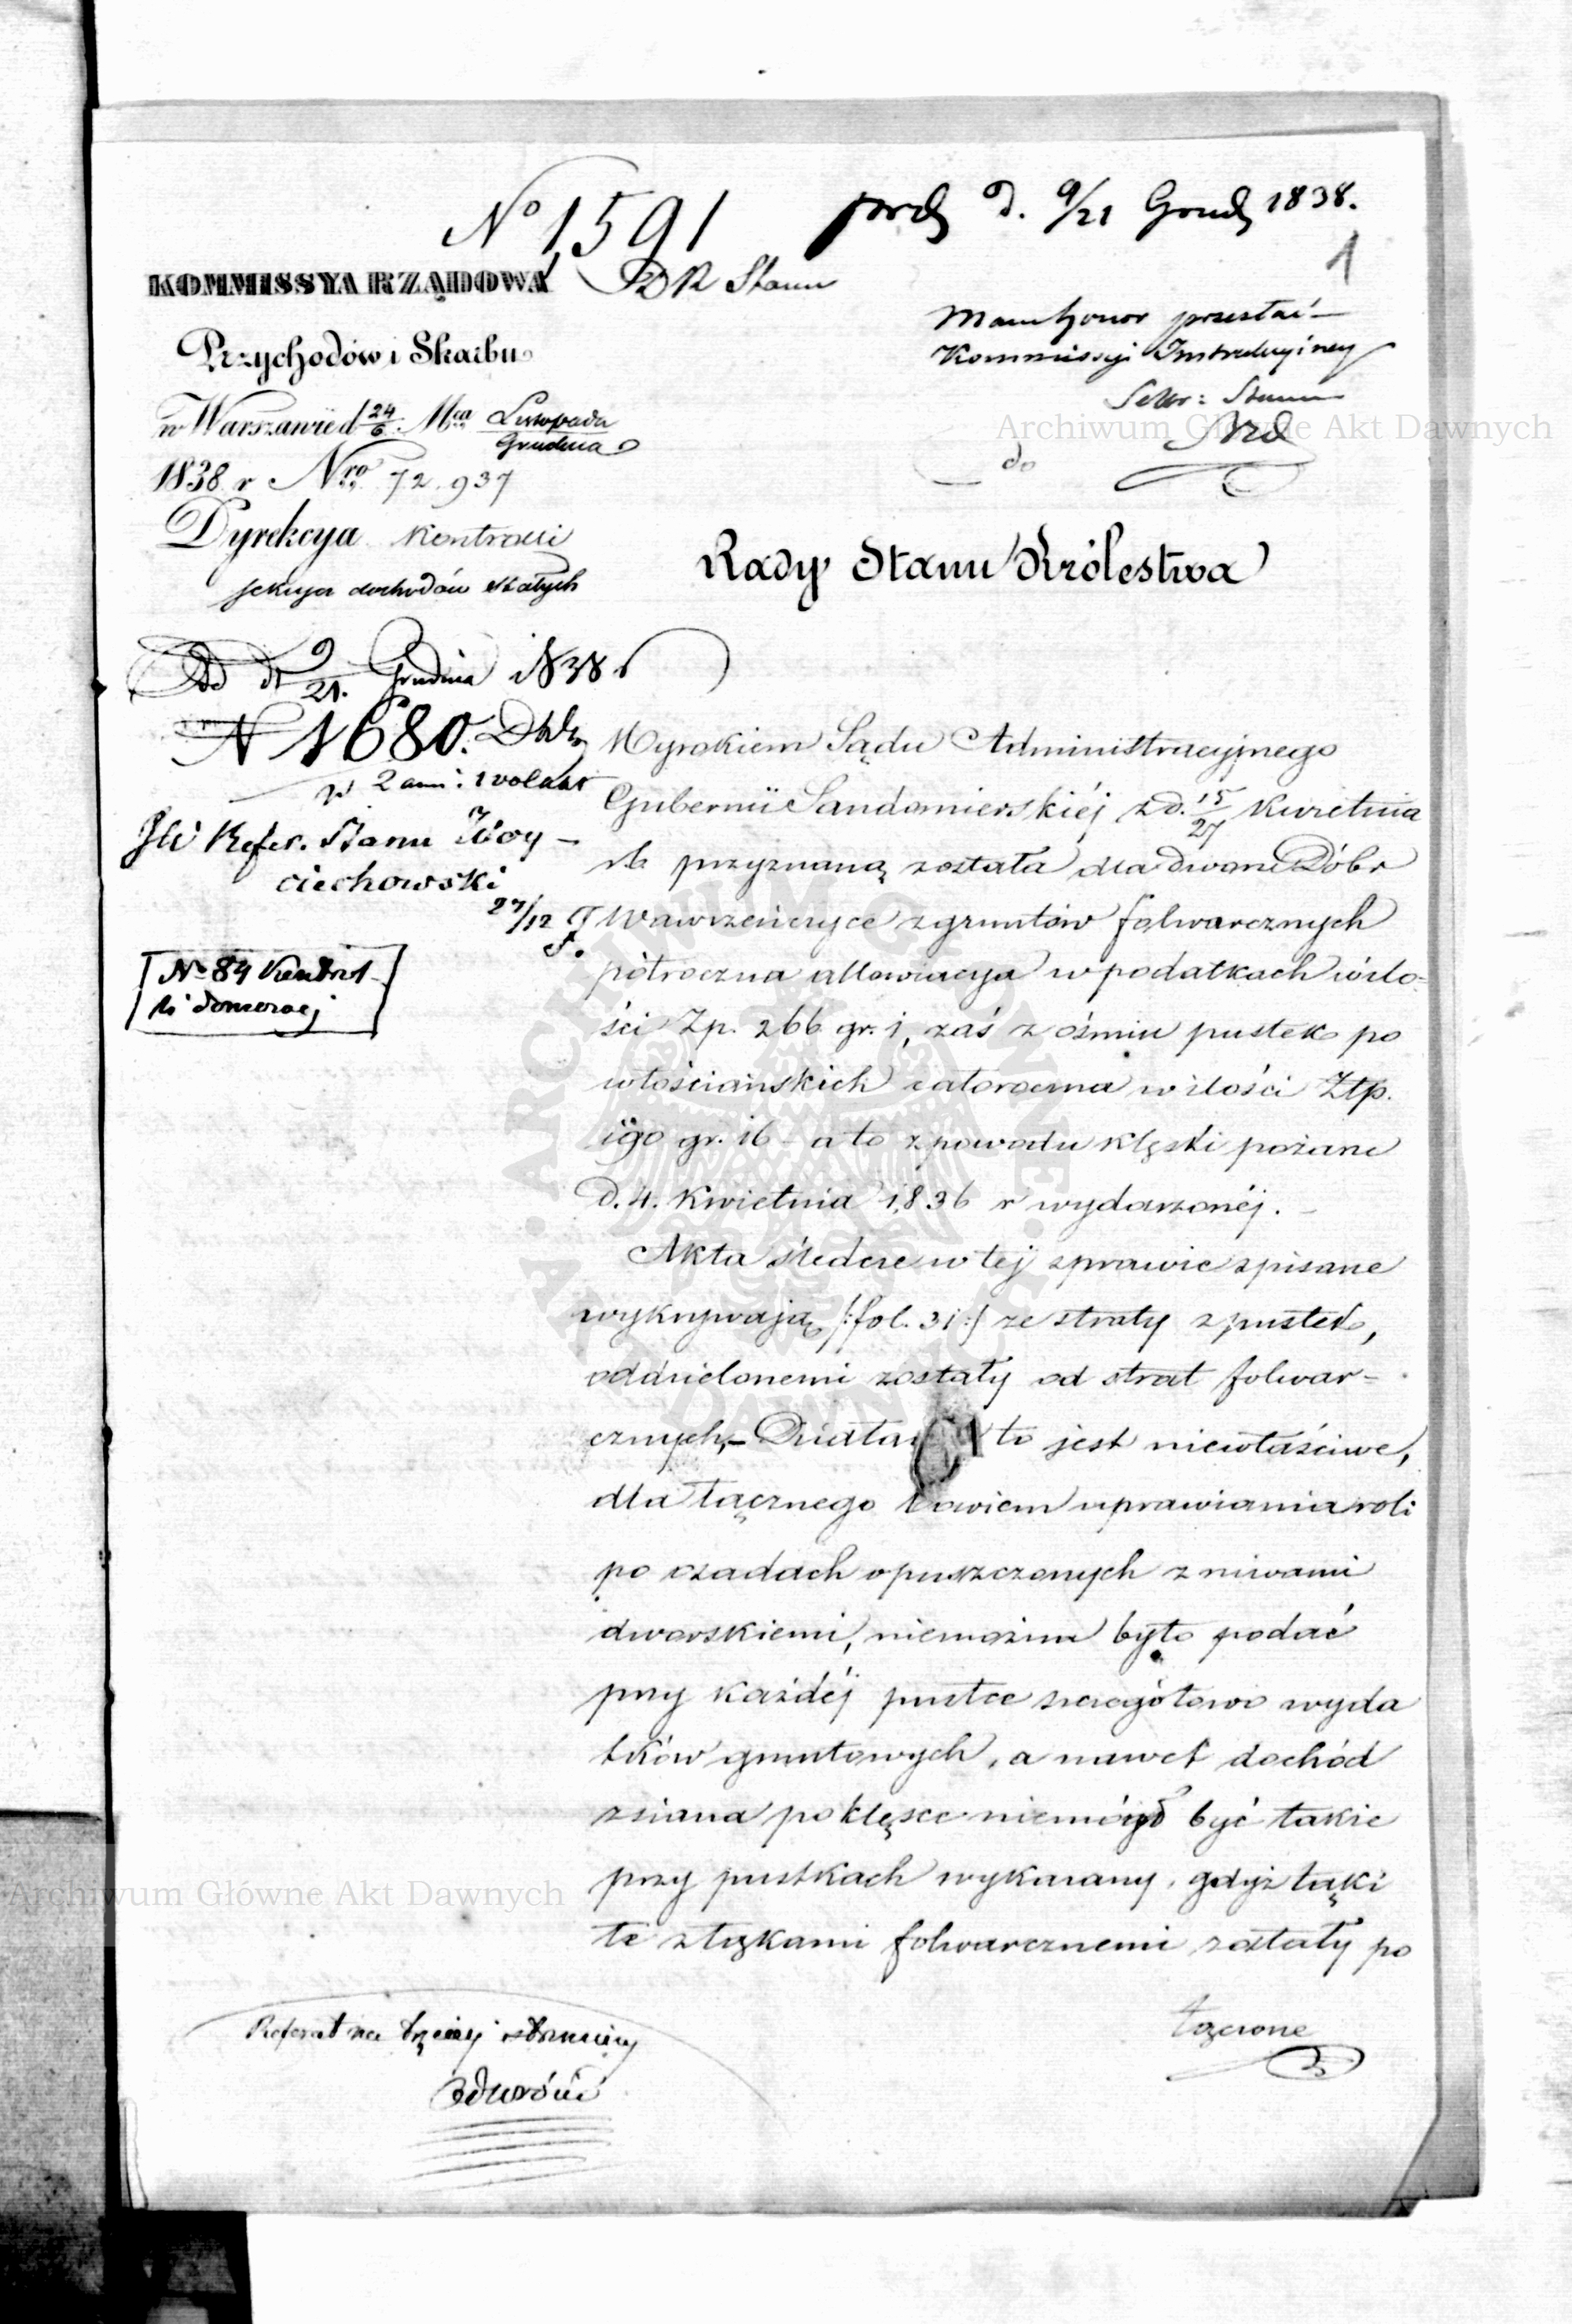 No 1591
prd d. 9/21 Grud 1838.
1
KOMMISSYA RZĄDOWA
DR Stanu
Przychodów i Skarbu
w Warszawie d 24/6 Mca Listopada/Grudnia
1838 r Nro 72.937
Dyrekcya Kontrolli
sekcya dochodów stałych
Mam honor przesłać
Kommissyi Instrukcyiney
Sekr: Stanu
do
Rady Stanu Królestwa
Dd d 9/21. Grudnia 1838 r
N 1680.
w 2 am: 1 volum
JW Refer. Stanu Woy-
ciechowski
27/12
No 84 Kontrol
Wyrokiem Sądu Administracyjnego
Gubernii Sandomierskiéj z d. 15/27 Kwietnia
rb przyznaną została dla dwone Dóbr
Wawrzeńczyce z gruntów folwarcznych
półroczna allewiacya w podatkach w ilo-
ści Zp. 266 gr. 1, zaś z ośmiu pustek po
włościańskich całoroczna w ilości Złp.
190 gr. 16 - a to z powodu klęski pożaru
d. 4. Kwietnia 1836 r wydarzonéj. -
Akta śledcze w tej sprawie spisane
wykrywają /:fol. 31:/ że straty z pustek,
oddzielonemi zostały od strat folwar-
cznych,- Działa to jest niewłaściwe,
dla łącznego bowiem uprawiania roli
po osadach opuszczonych z niwami
dworskiemi, niemożna było podać
przy każdéj pustce szczegółowo wyda
tków gruntowych, a nawet dochód
z siana po klęsce niemógł być takie
przy pustkach wykazany, gdyż łąki
te z łąkami folwarcznemi zostały po
łączone
Referat na trzeciey stronnicy
Archiwum Główne Akt Dawnych
Archiwum Główne Akt Dawnych
ARCHIWUM GŁÓWNE AKT DAWNYCH